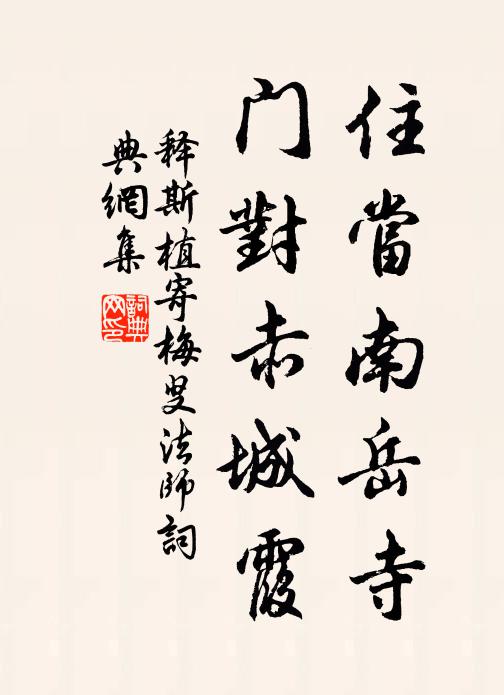 住當南岳寺
門對赤城霞
释斯植寄梅叟法師詞
典網集
詞典
网印